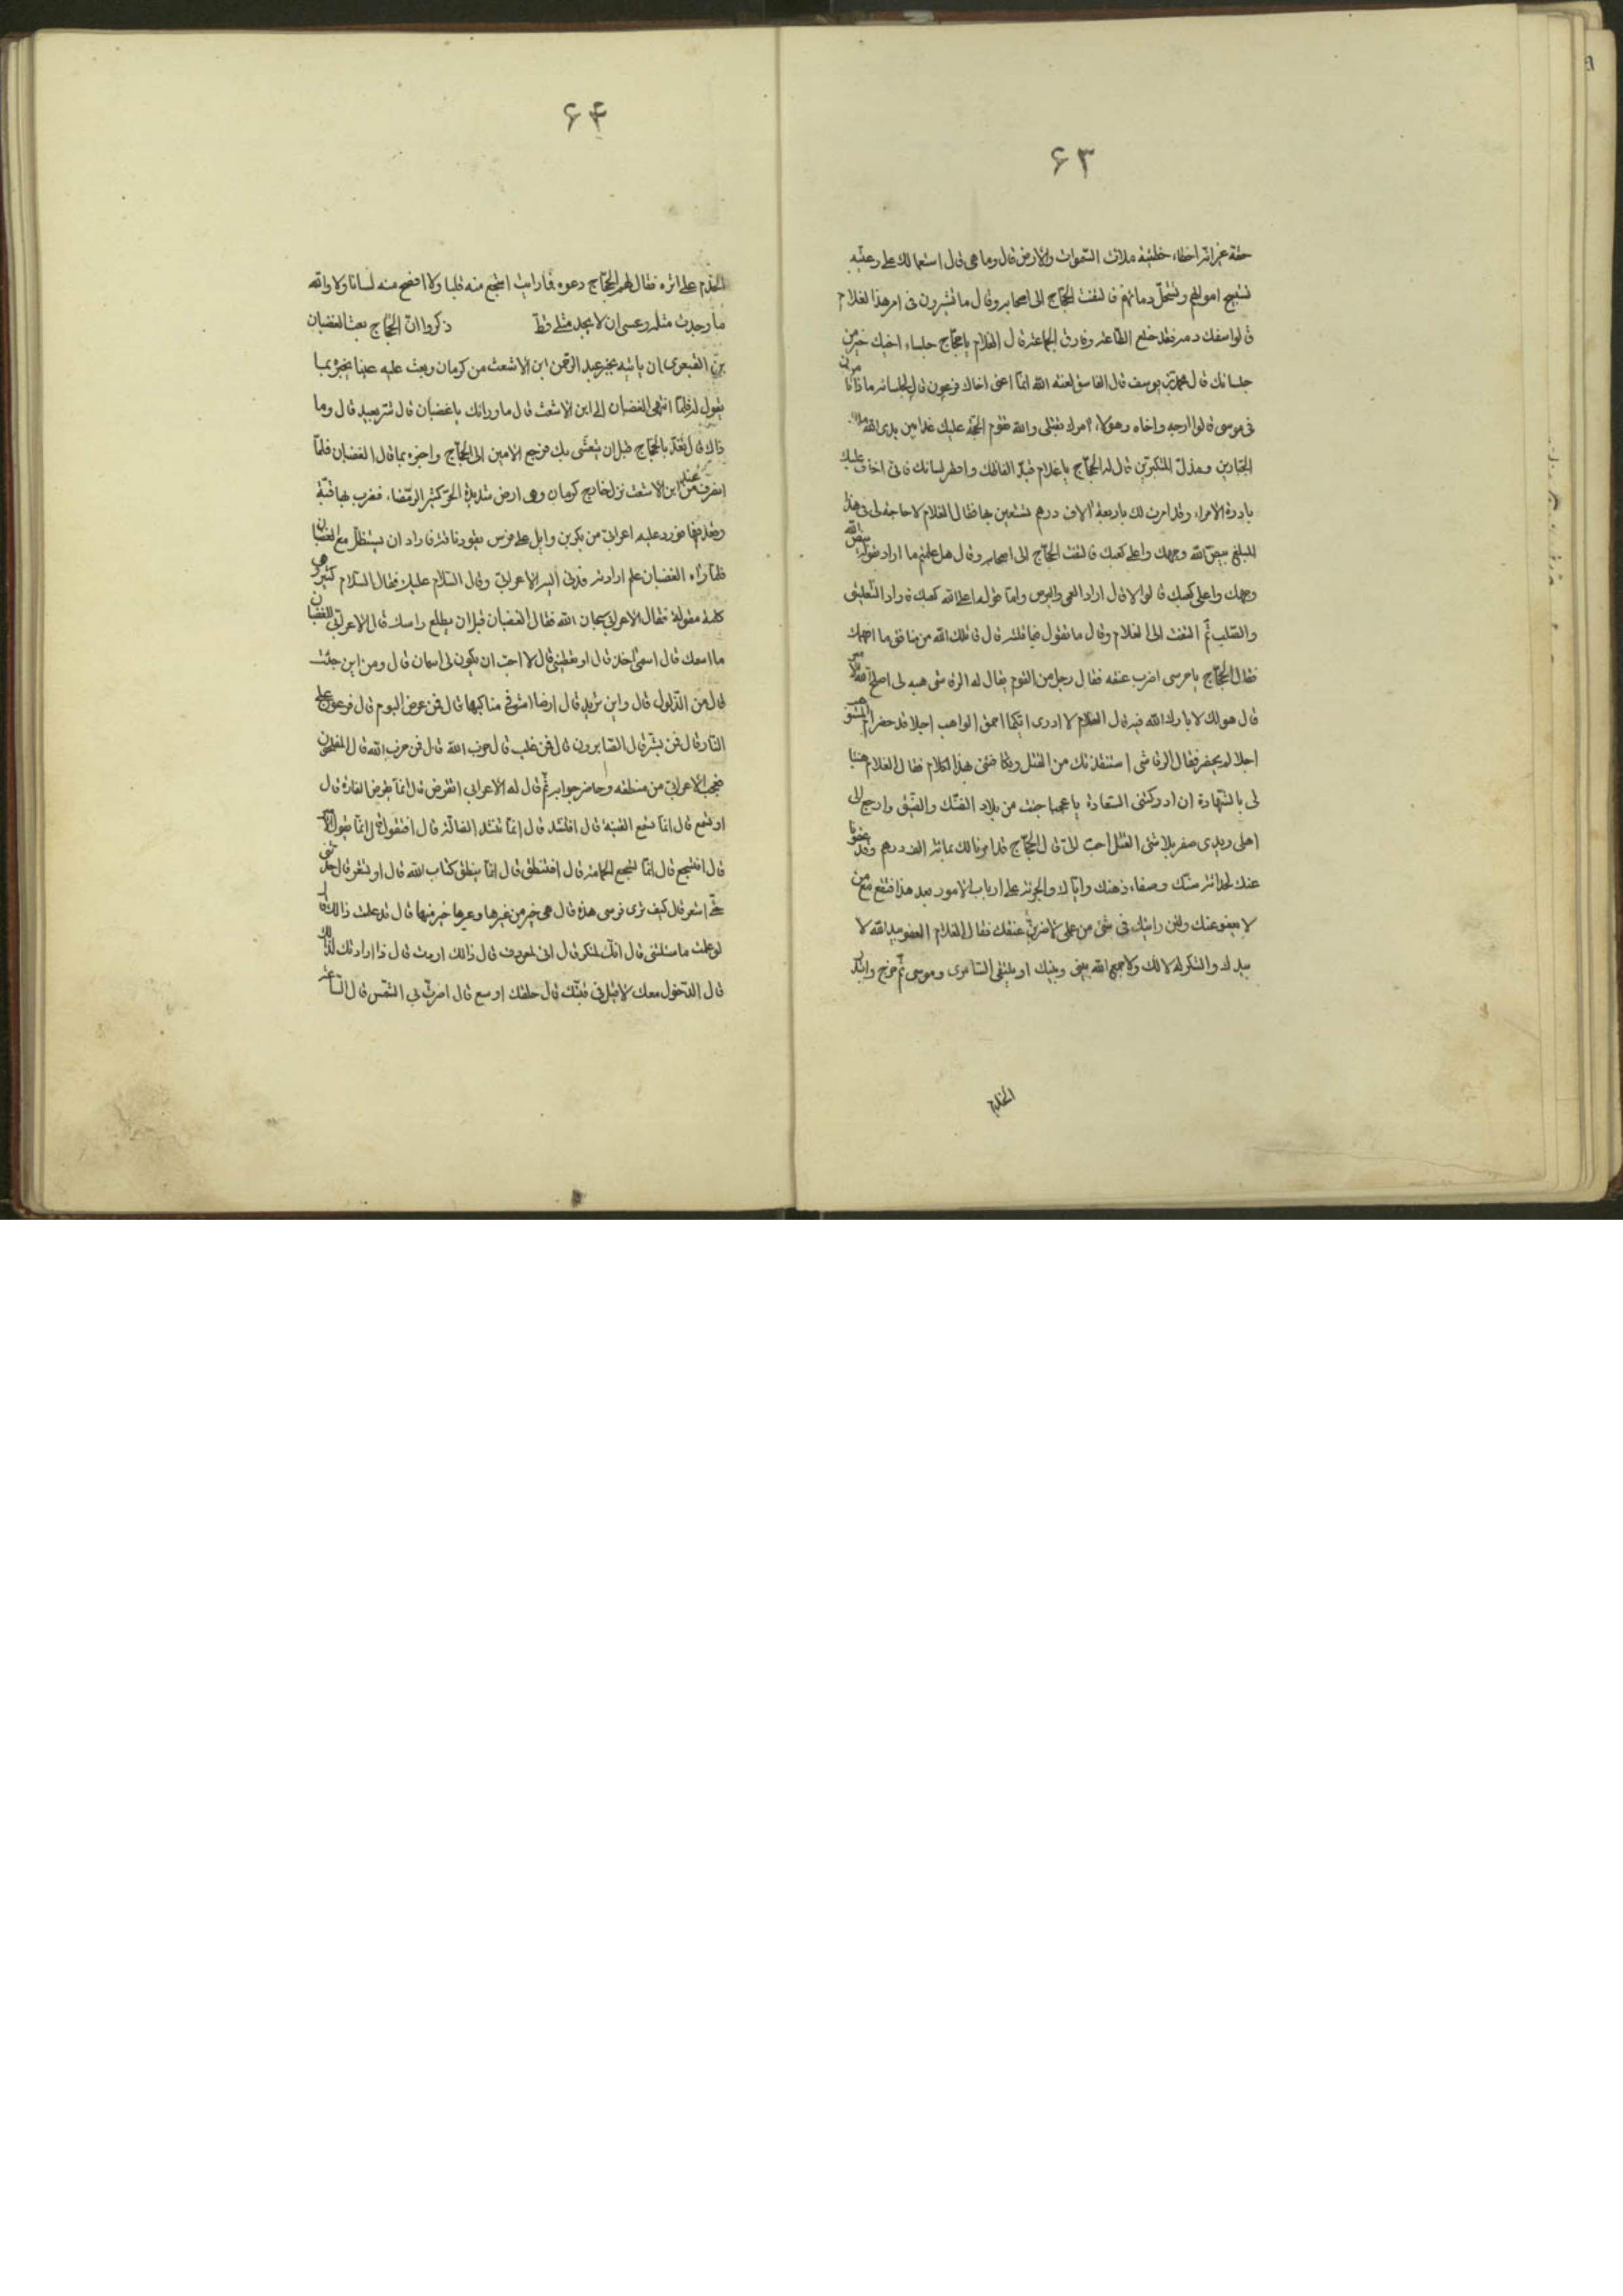 ۶۳
حقه غير انه اخطاء خطيئة ملات السموات والارض قال وما هى قال استعمالك على رعيته
تستبيح اموالهم وتستحل دمائهم فالتفت الحجاج الى اصحابه وقال ما تشيرون فى امر هذا الغلام
قالوا سفك دمه فقد خلع الطاعة وفارق الجماعة قال الغلام يا حجاج جلساء اخيك خير من
جلسائك قال محمد بن يوسف قال الفاسق لعنه الله انما اعنى اخاك فرعون قال لجلسائه ماذا تامرون
فى موسى قالوا ارجه واخاه وهؤلاء امرك بقتلى والله تقوم الحجة عليك غدا بين يدى الله ملك
الجبارين ومذل المتكبرين قال له الحجاج يا غلام قيد الفاظك واقصر لسانك فانى اخاف عليك
بادرة الامراء وقد امرت لك باربعة الاف درهم تستعين بها فقال الغلام لا حاجة لى فى هذا
المبلغ بيض الله وجهك واعلى كعبك فالتفت الحجاج الى اصحابه وقال هل علمتم ما اراد بقوله بيض الله
وجهك واعلى كعبك قالوا لا قال اراد العمى والبرص واما قوله اعلى الله كعبك فاراد التعليق
والصليب ثم التفت الى الغلام وقال ما تقول فيما قلته قال قاتلك الله من منافق ما افهمك
فقال الحجاج يا حرسى اضرب عنقه فقال رجل من القوم يقال له الرقاشى هبه لى اصلح الله الامير
قال هو لك لا بارك الله فيه قال الغلام لا ادرى ايكما احمق الواهب اجلا قد حضر ام المستوهب
اجلا لم يحضر فقال الرقاشى استنقذتك من القتل وتكافئنى بهذا الكلام فقال الغلام هنيئا
لى بالشهادة ان ادركتنى السعادة يا عجبا جئت من بلاد الضنك والضيق وارجع الى
اهلى ويدى صفر بلا شئ القتل احب الى قال الحجاج قد امرنا لك بمائة الف درهم وقد عفونا
عنك لحداثة سنك وصفاء ذهنك واياك والجرئة على ارباب الامور بعد هذا فتقع مع من
لا يعفو عنك ولئن رايتك فى شئ من عملى لاضربن عنقك فقال الغلام العفو بيد الله لا
بيدك والشكر له لا لك ولا جمع الله بينى وبينك او يلتقى السامرى وموسى ثم خرج وابتدر
الخدم
۶۴
الخدم على اثره فقال لهم الحجاج دعوه فما رايت اشجع منه قلبا ولا افصح منه لسانا ولا والله
ما وجدت مثله وعسى ان لا يجد مثلى قط ذكروا ان الحجاج بعث الغضبان
بن القبعرى ان ياتيه بخبر عبد الرحمن ابن الاشعث من كرمان وبعث عليه عينا يخبره بما
يقول له فلما انتهى الغضبان الى ابن الاشعث قال ما ورائك يا غضبان قال شر بعيد قال وما
ذاك قال تغد بالحجاج قبل ان يتعشى بك فرجع الامين الى الحجاج واخبره بما قال الغضبان فلما
انصرف من عند ابن الاشعث نزل خارج كرمان وهى ارض شديدة الحر كثير الرمضاء فضرب بها قبة
وقعد فيها فورد عليه اعرابى من بكر بن وايل على فرس يقود ناقة فاراد ان يستظل مع الغضبان
فلما راه الغضبان علم ارادته فدنى اليه الاعرابى وقال السلام عليك فقال السلام كثير هى
كلمة مقولة فقال الاعرابى سبحان الله فقال الغضبان قبل ان يطلع راسك قال الاعرابى للغضبان
ما اسمك قال اسمى اخذ قال او تعطينى قال لا احب ان يكون لى اسمان قال ومن اين جئت
قال من الذلول قال واين تريد قال ارضا امشو فى مناكبها قال فمن عرض اليوم قال فرعون على
النار قال فمن بشر قال الصابرون قال فمن غلب قال حزب الله قال فمن حزب الله قال المفلحون
فتعجب الاعرابى من منطقه وحاضر جوابه ثم قال له الاعرابى اتقرض قال انما يقرض الفارة قال
او تسمع قال انما تسمع القينة قال افتنشد قال انما تنشد الضالة قال افتقول قال انما يقول الامير
قال افتسجع قال انما تسجع الحمامة قال افتنطق قال انما ينطق كتاب الله قال او تشعر قال حدثنى
حتى اشعر قال كيف ترى فرسى هذه قال هى خير من غيرها وغيرها خير منها قال قد علمت ذالك قال
لو علمت ما سئلتنى قال انك لمنكر قال انى لمعروف قال ذالك اردت قال فما ارادتك لذالك
قال الدخول معك لاقيل فى قبتك قال خلفك اوسع قال اضرت بى الشمس قال الساعة